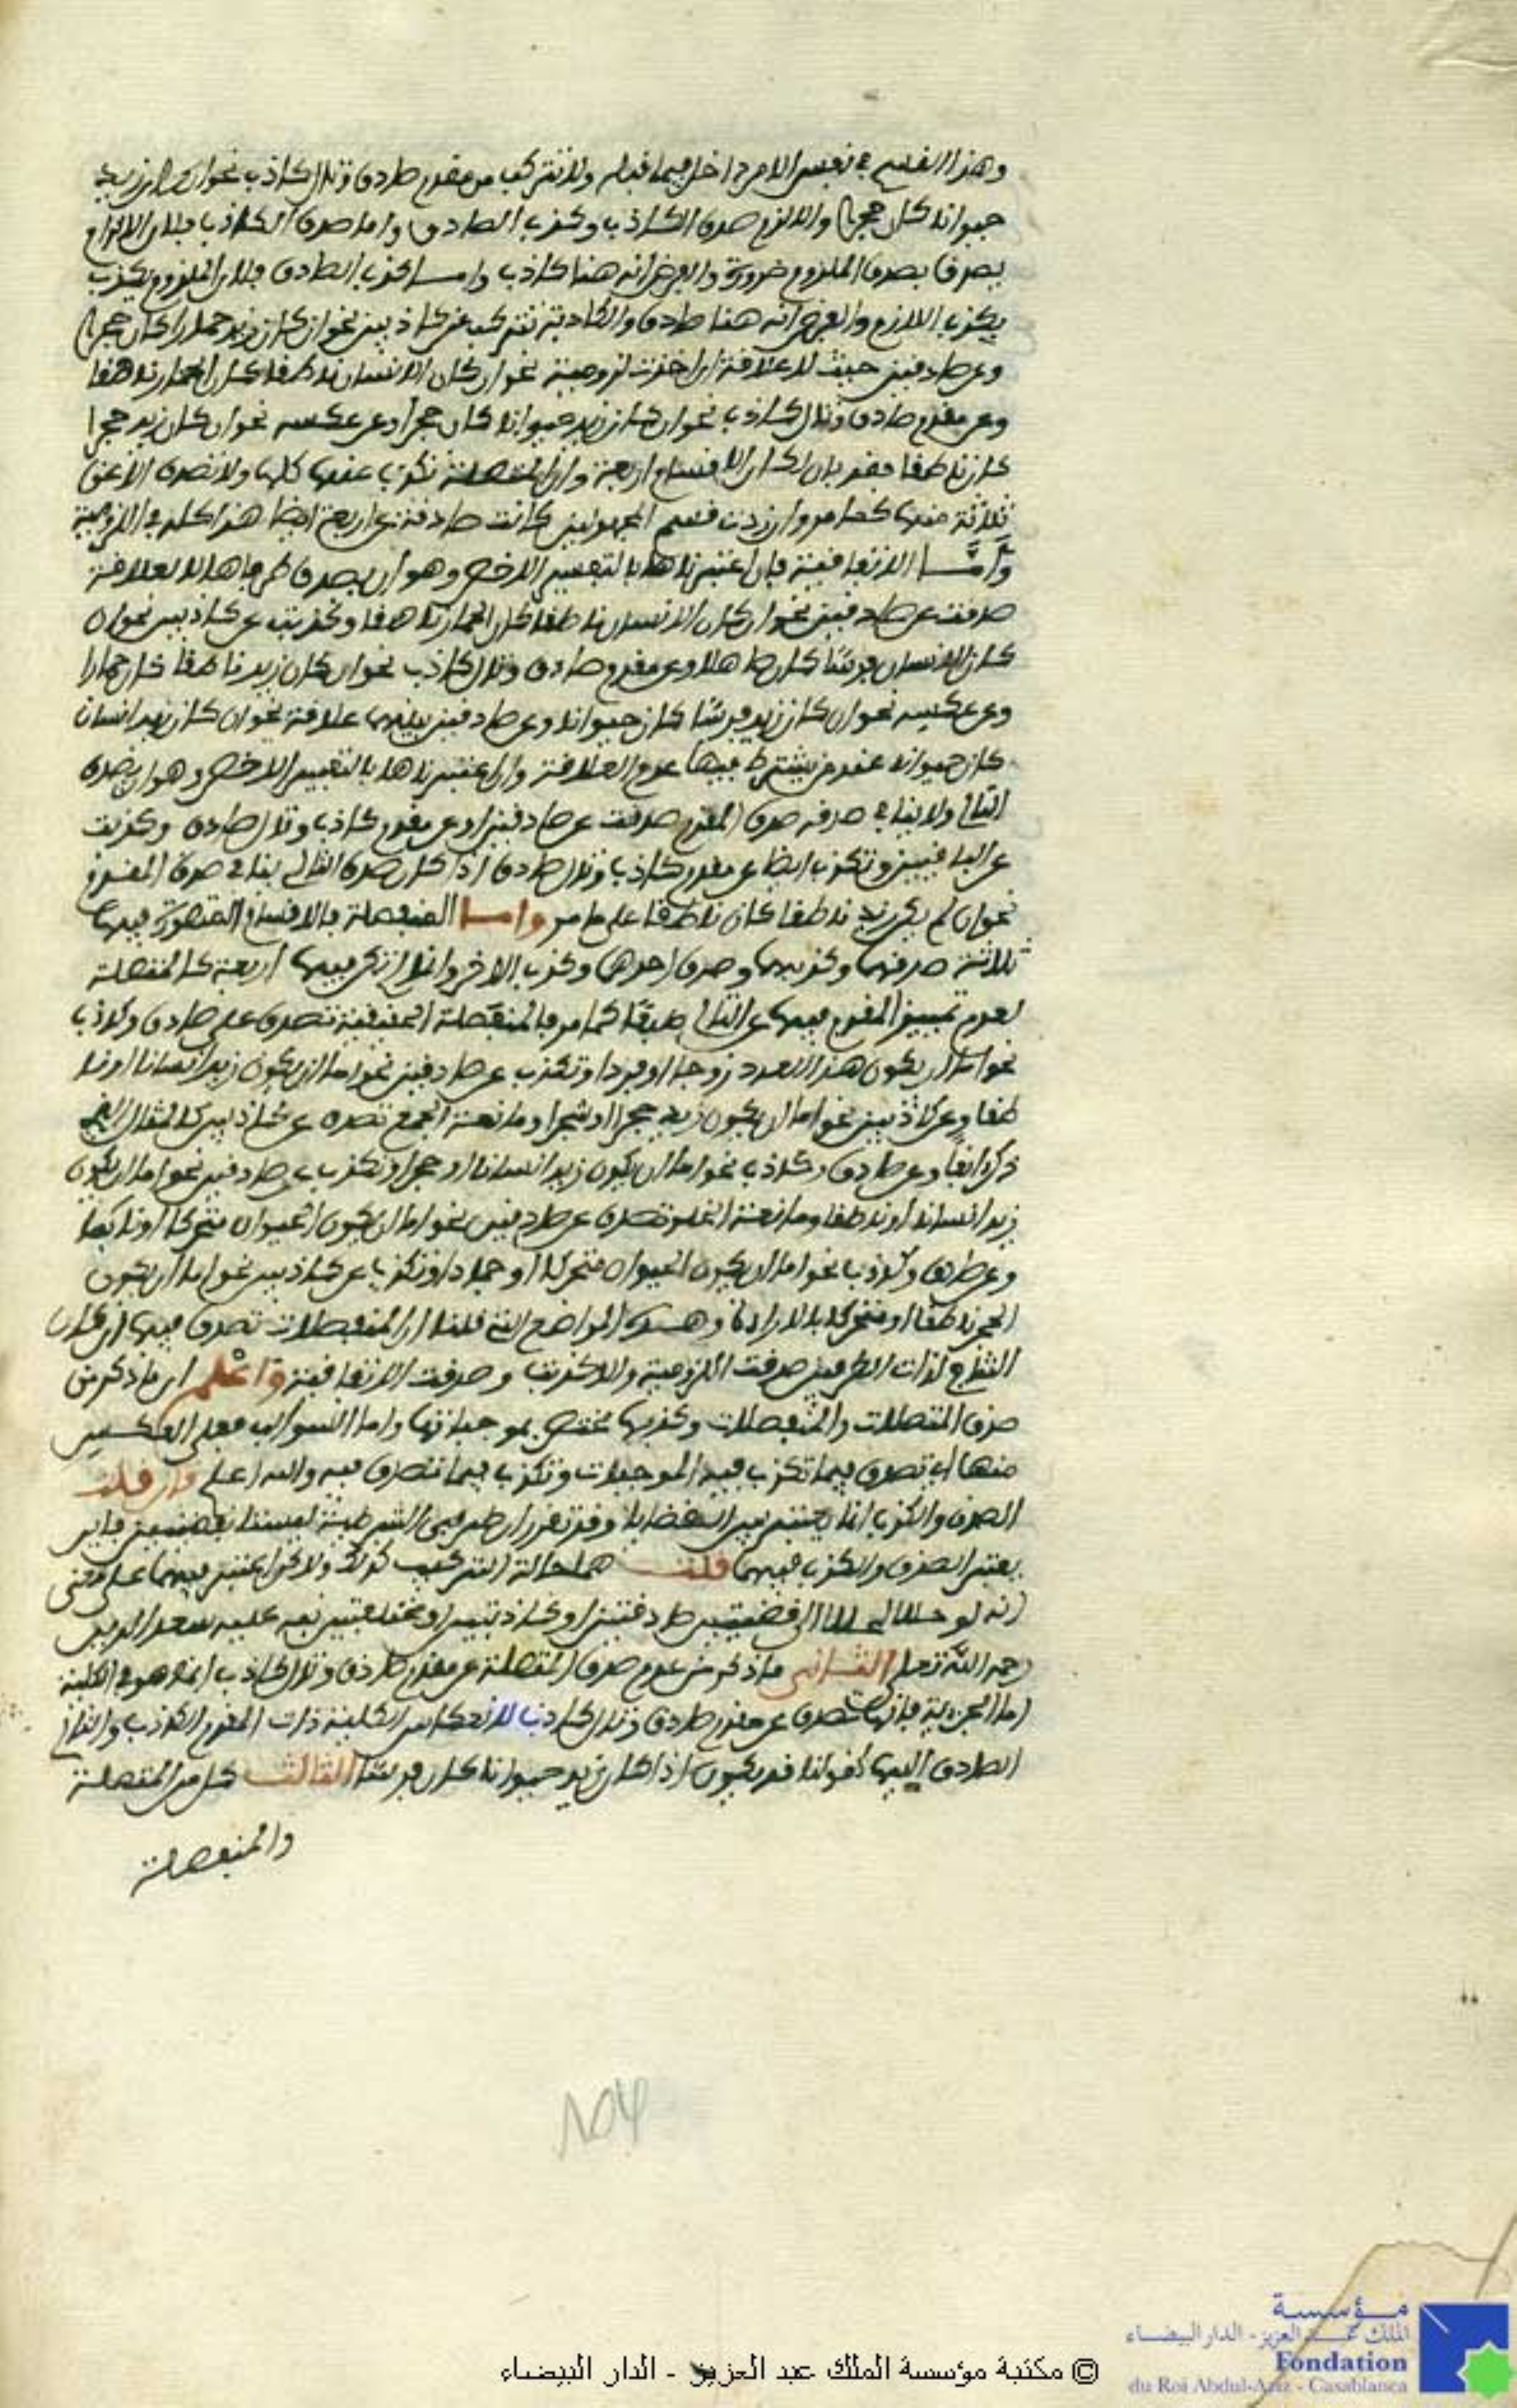 وهذا القسم في نفس الامر داخل فيما قبله ولا تتركب من مقدم صادق وتال كاذب نحو ان كان زيد
حيوانا كان حجرا والا لزم صدق الكاذب وكذب الصادق واما صدق الكاذب فلان اللازم
يصدق بصدق الملزوم ضرورة والفرض انه هنا كاذب واما كذب الصادق فلان الملزوم يكذب
بكذب اللازم والفرض انه هنا صادق والكاذبة تتركب عن كاذبين نحو ان كان زيد حمارا كان حجرا
وعن صادقين حيث لا علاقة ان اخذت لزومية نحو ان كان الانسان ناطقا كان الحمار ناهقا
وعن مقدم صادق وتال كاذب نحو ان كان زيد حيوانا كان حجرا وعن عكسه نحو ان كان زيد حجرا
كان ناطقا فقد بان لك ان الاقسام اربعة وان المتصلة تكذب عنها كلها ولا تصدق الا عن
ثلاثة منها كما مر وان زدت قسم المجهولين كانت صادقة عن اربعة ايضا هذا كله في اللزومية
وأمّا الاتفاقية فان اعتبرناها بالتفسير الاخص وهو ان يصدق طرفاها لا لعلاقة
صدقت عن صادقين نحو ان كان الانسان ناطقا كان الحمار ناهقا وكذبت عن كاذبين نحو ان
كان الانسان فرسا كان صاهلا وعن مقدم صادق وتال كاذب نحو ان كان زيد ناطقا كان حمارا
وعن عكسه نحو ان كان زيد فرسا كان حيوانا وعن صادقين بينهما علاقة نحو ان كان زيد انسان
كان حيوانا عند من يشترط فيها عدم العلاقة وان اعتبرناها بالتفسير الاخص وهو ان يصدق
التالي ولا ينافي صدقه صدق المقدم صدقت عن صادقين او عن مقدم كاذب وتال صادق وكذبت
عن الباقيين وتكذب ايضا عن مقدم كاذب وتال صادق اذا كان صدق التالي ينافي صدق المقدم
نحو ان لم يكن زيد ناطقا كان ناطقا على ما مر واما المنفصلة فالاقسام المتصورة فيها
ثلاثة صدقهما وكذبهما وصدق احدهما وكذب الاخر وانما لم تكن فيها اربعة كالمتصلة
لعدم تمييز المقدم فيها عن التالي طبعا كما مر فالمنفصلة الحقيقية تصدق على صادق وكاذب
نحو اما ان يكون هذا العدد زوجا او فردا وتكذب عن صادقين نحو اما ان يكون زيد انسانا او نا
طقا وعن كاذبين نحو اما ان يكون زيد حجرا او شجرا ومانعة الجمع تصدق عن كاذبين كالمثال الذي
ذكر انفا وعن صادق وكاذب نحو اما ان يكون زيد انسانا او حجرا وتكذب عن صادقين نحو اما ان يكون
زيد انسانا او ناطقا ومانعة الخلو تصدق عن صادقين نحو اما ان يكون الحيوان متحركا او
وعن صادق وكاذب نحو اما ان يكون الحيوان متحركا او جمادا وتكذب عن كاذبين نحو اما ان يكون
الحجر ناطقا او متحركا بالارادة وهذه المواضع التي قلنا ان المنفصلات تصدق فيها ان كان
لذات الطرفين صدقت اللزومية والا كذبت وصدقت الاتفاقية واعلم ان ما ذكر من
صدق المتصلات والمنفصلات وكذبها مختص بموجباتها واما السوالب فعلى العكس
منها اي تصدق فيما تكذب فيه الموجبات وتكذب فيما تصدق فيه والله اعلم فان قلت
الصدق والكذب انما يعتبر بين القضايا وقد تقرر ان طرفي الشرطية ليستا بقضيتين فاين
يعتبر الصدق والكذب فيهما قلت هما حالة التركيب كذلك ولاكن اعتبر فيهما على معنى
انه لو حللا الى قضيتين صادقتين او كاذبتين او مختلفتين نبه عليه سعد الدين
رحمه الله تعلى الثاني ما ذكر من عدم صدق المتصلة عن مقدم صادق وتال كاذب انما هو في الكلية
اما الجزئية فانها تصدق عن مقدم صادق وتال كاذب لانعكاس الكلية ذات المقدم الكاذب والتالي
الصادق اليها كقولنا قد يكون اذا كان زيد حيوانا كان فرسا الثالث كل من المتصلة
والمنفصلة
© مكتبة مؤسسة الملك عبد العزيز - الدار البيضاء
مؤسسة
الملك عبد العزيز - الدار البيضاء
Fondation
du Roi Abdul-Aziz - Casablanca